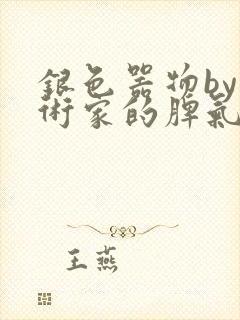 銀色器物by
術家的脾氣
王燕